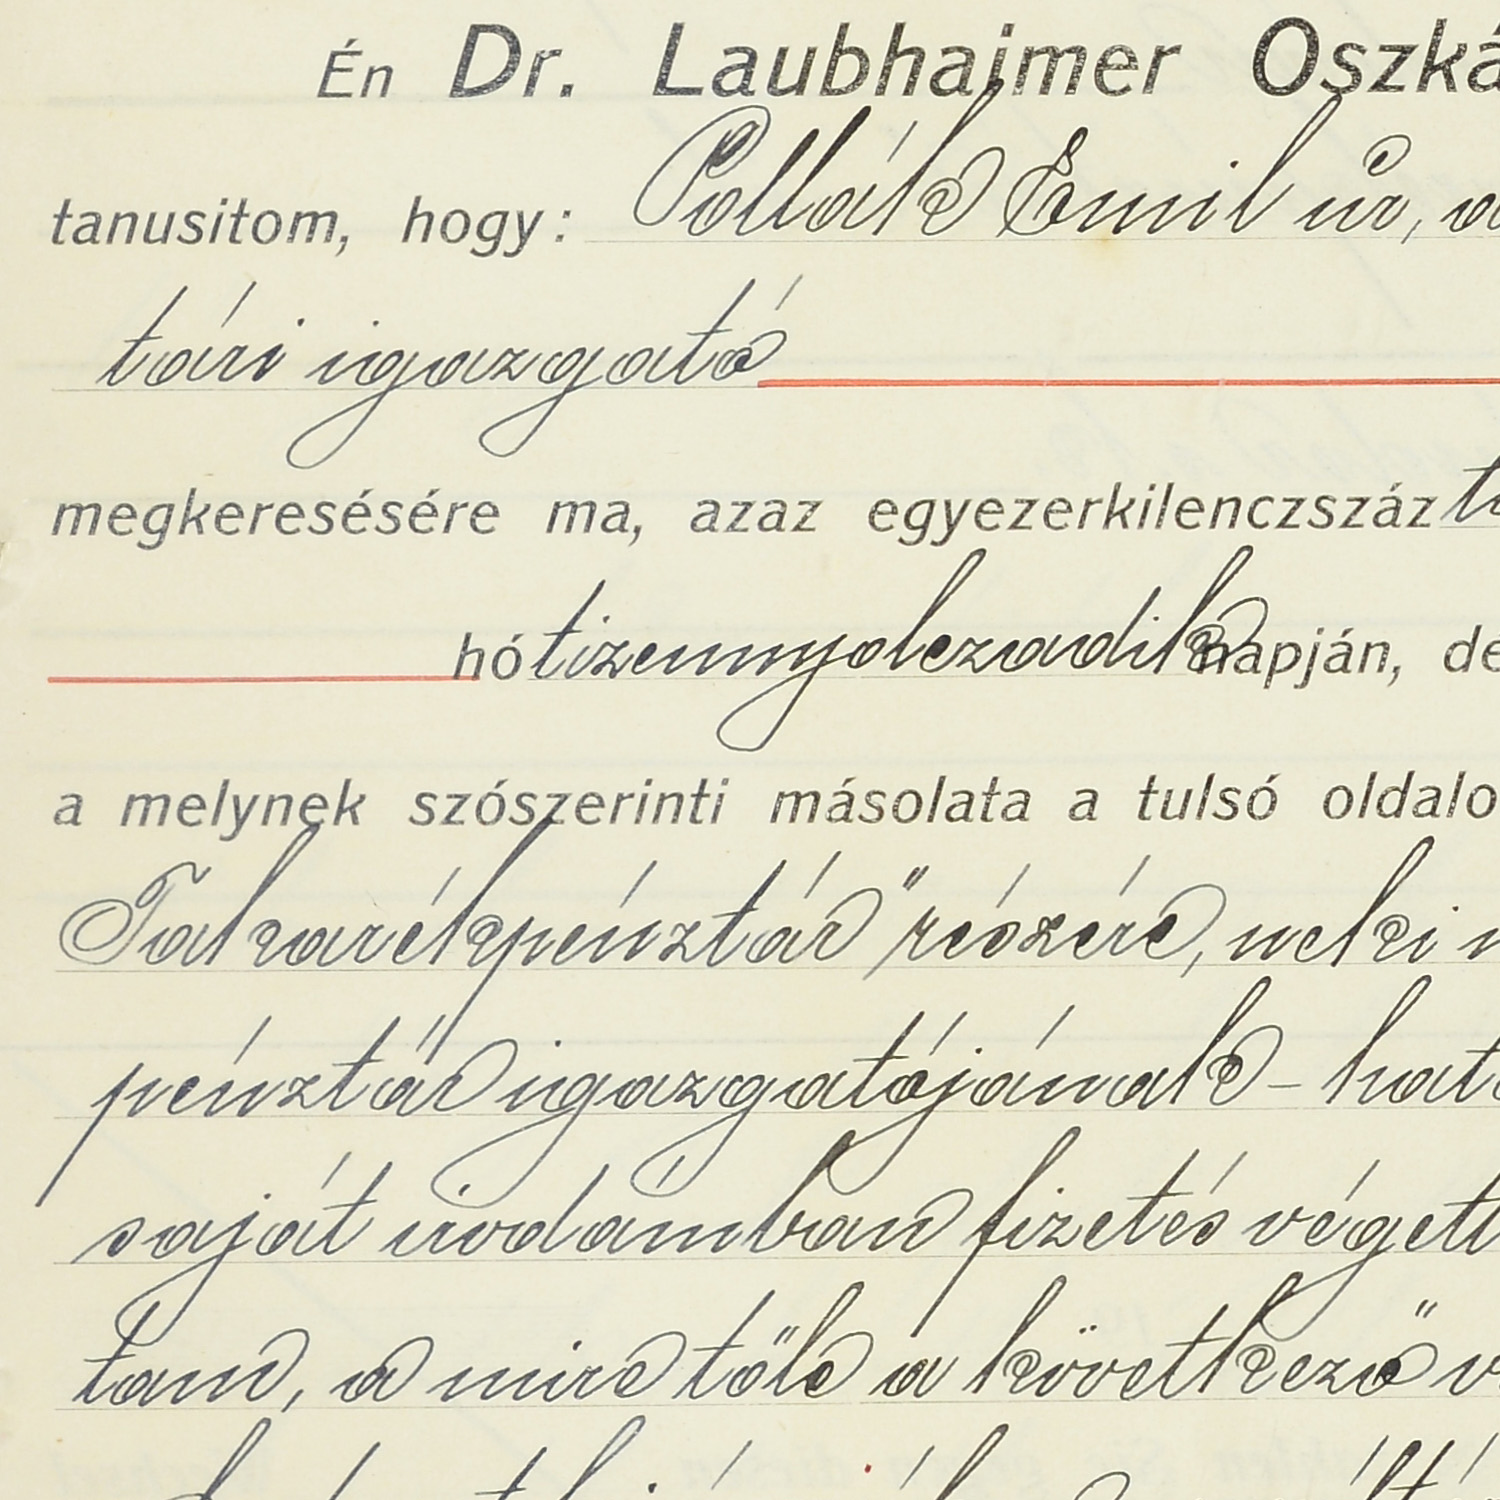 Én Dr. Laubhaimer Oszká
tanusitom, hogy: Pollák Emil úr, a
tári igazgató
megkeresésére ma, azaz egyezerkilenczszáz ti
hó tizennyolczadik napján, de
a melynek szószerinti másolata a tulsó oldalo
Takarékpénztár" részére, neki n
pénztár igazgatójának - hat
saját irodámban fizetés végett
tam, a mire tőle a következő v